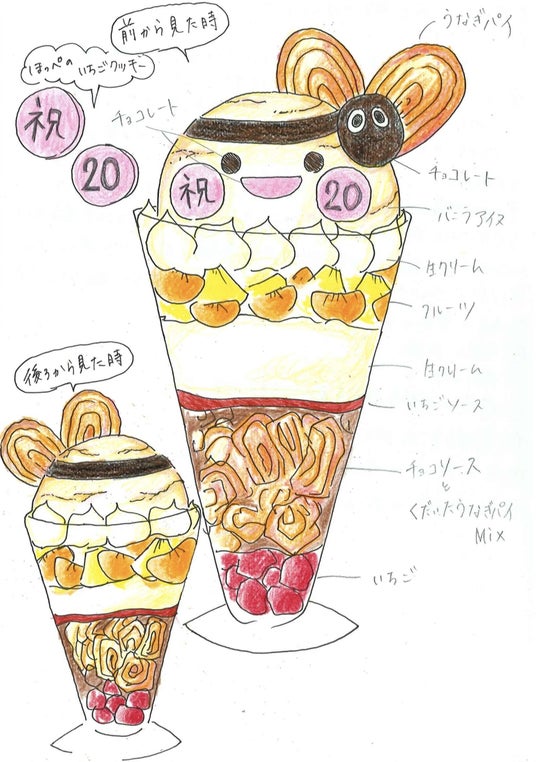 前から見た時
うなぎパイ
ほっぺのいちごクッキー
祝
20
チョコレート
チョコレート
祝
20
バニラアイス
生クリーム
フルーツ
生クリーム
いちごソース
チョコソース
と
くだいたうなぎパイ
Mix
いちご
後ろから見た時